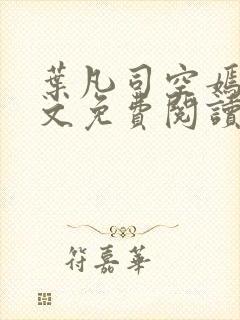 葉凡司空嫣
文免費閱讀
符嘉華